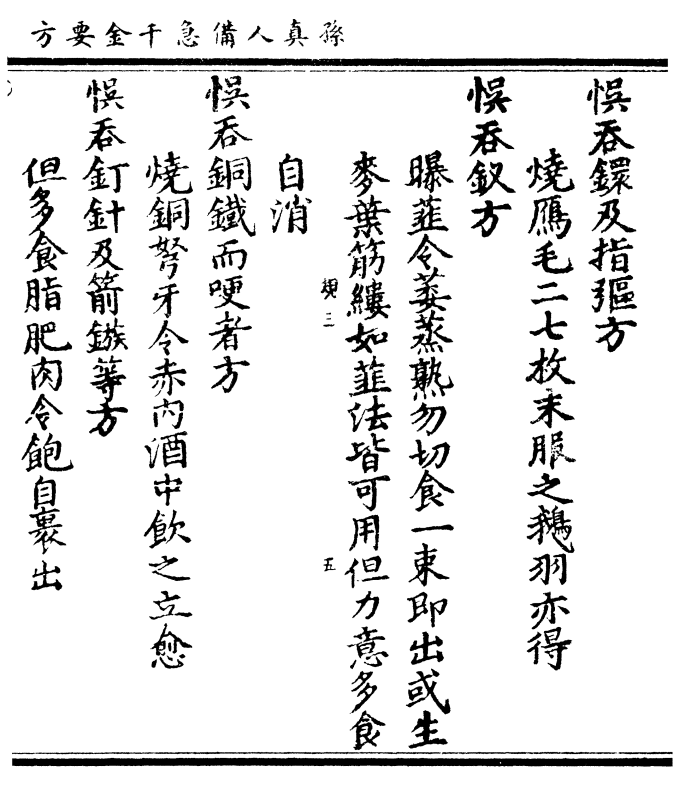 孫真人備急千金要方
悮吞鐶及指彄方
燒鴈毛二七枚末服之鵝羽亦得
悮吞釵方
曝韮令萎蒸熟勿切食一束即出或生
麥葉筋縷如韮法皆可用但力意多食
規三
五
自消
悮吞銅鐵而哽者方
燒銅弩牙令赤内酒中飲之立愈
悮吞釘針及箭鏃等方
但多食脂肥肉令飽自裹出